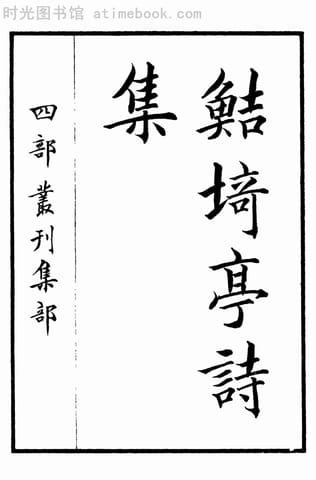 时光图书馆 atimebook.com
鮚埼亭詩
集
四部叢刊集部